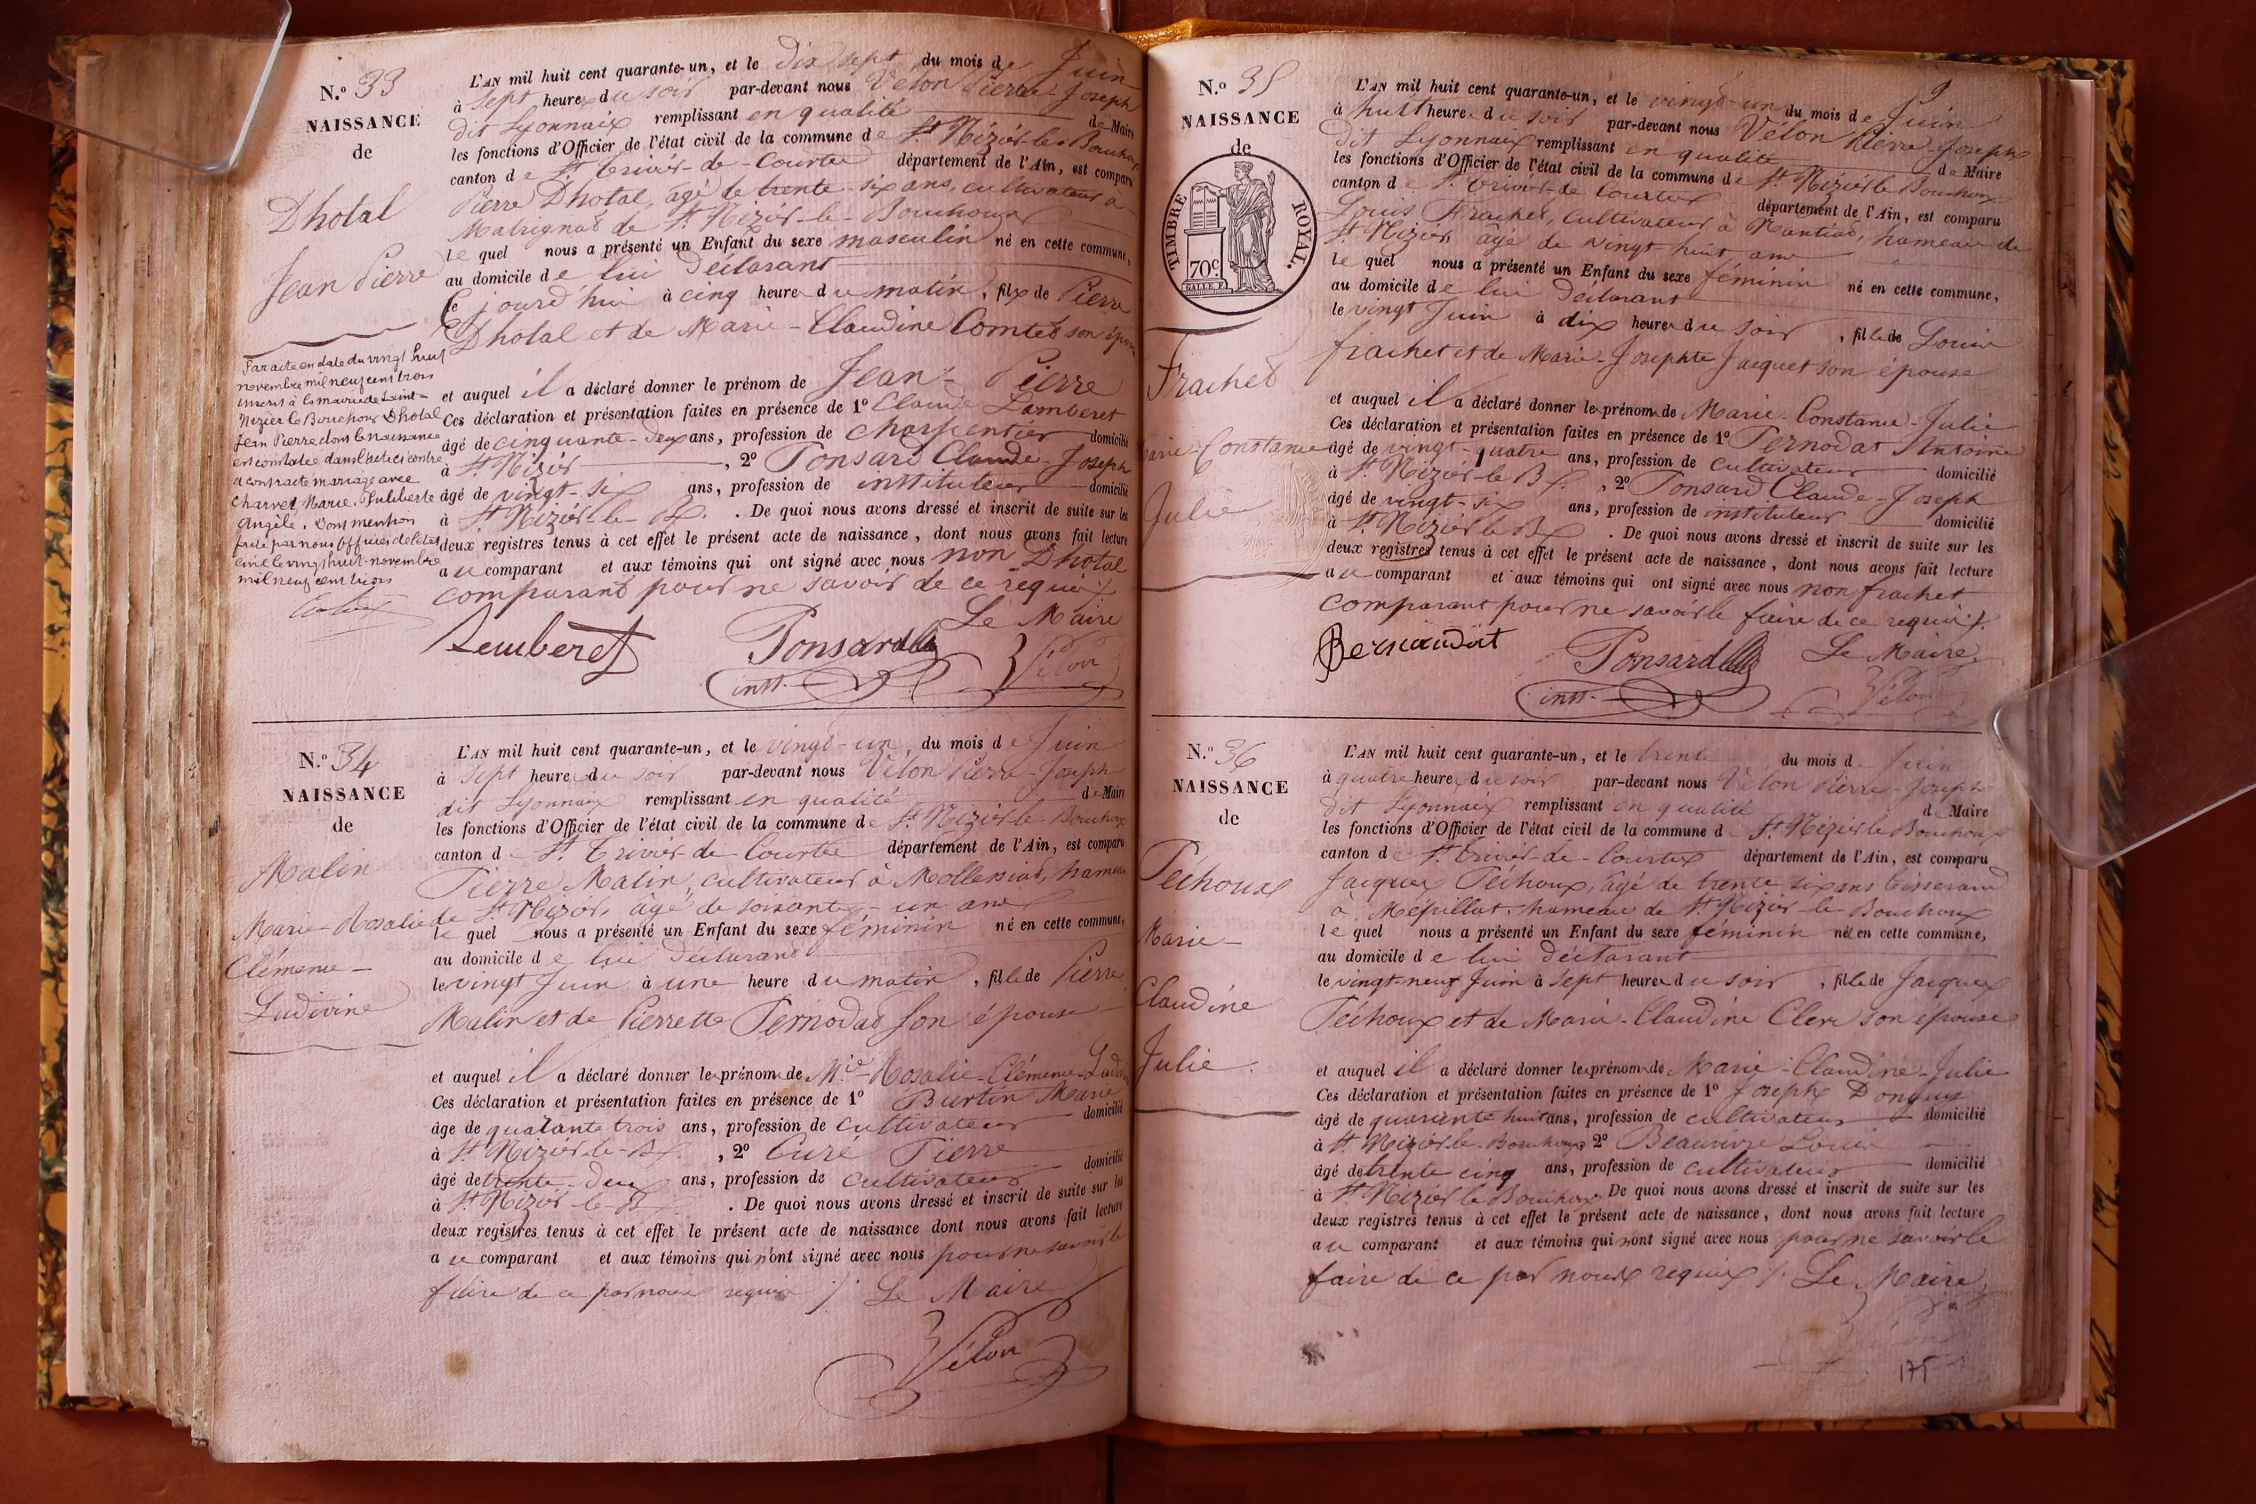 N.° 33
NAISSANCE
de
Dhotal
Jean Pierre
Par acte en date du vingt huit
novembre mil neuf cent trois
inscrit à la mairie de Saint-
Nizier le Bouchoux Dhotal
Jean Pierre dont la naissance
est constatée dans l'acte ci contre
a contracté mariage avec
Charvet Marie Philiberte
Angèle. Dont mention
faite par nous officier de l'état
civil le vingt huit novembre
mil neuf cent trois
L'AN mil huit cent quarante-un, et le dix sept du mois de Juin
à Sept heures du soir par-devant nous Vélon Pierre-Joseph
dit Lyonnaix remplissant en qualité de Maire
les fonctions d'Officier de l'état civil de la commune de St Nizier-le-Bouchoux
canton de St Trivier-de-Courtes département de l'Ain, est comparu
Pierre Dhotal, âgé de trente-six ans, cultivateur à
Matrignat de St Nizier-le-Bouchoux
lequel nous a présenté un Enfant du sexe masculin né en cette commune,
au domicile de lui Déclarant
Ce jourd'hui à cinq heures du matin, fils de Pierre
Dhotal et de Marie-Claudine Comtet son épouse
et auquel il a déclaré donner le prénom de Jean-Pierre
Ces déclaration et présentation faites en présence de 1° Claude Lamberet
âgé de cinquante-deux ans, profession de charpentier domicilié
à St Nizier , 2° Ponsard Claude-Joseph
âgé de vingt-six ans, profession de instituteur domicilié
à St Nizier-le-Bx. De quoi nous avons dressé et inscrit de suite sur les
deux registres tenus à cet effet le présent acte de naissance, dont nous avons fait lecture
au comparant et aux témoins qui ont signé avec nous non Dhotal
comparant pour ne savoir de ce requis
Le Maire
Lamberet Ponsard
inst. Vélon
N.° 34
NAISSANCE
de
Malin
Marie-Rosalie
Clémence-
Ludivine
L'AN mil huit cent quarante-un, et le vingt-un, du mois de Juin
à Sept heures du soir par-devant nous Vélon Pierre-Joseph
dit Lyonnaix remplissant en qualité de Maire
les fonctions d'Officier de l'état civil de la commune de St Nizier-le-Bouchoux
canton de St Trivier-de-Courtes département de l'Ain, est comparu
Pierre Malin, cultivateur à hameau
de St Nizier, âgé de soixante-un ans
lequel nous a présenté un Enfant du sexe féminin né en cette commune,
au domicile de lui Déclarant
le vingt Juin à une heure du matin, fille de Pierre
Malin et de Pierrette Pernodat son épouse
et auquel il a déclaré donner les prénoms de Mie-Rosalie-Clémence-
Ces déclaration et présentation faites en présence de 1° Burtin Marie
âge de quatante trois ans, profession de cultivateur domicilié
à St Nizier-le-Bx. , 2° Curé Pierre
âgé de trente-deux ans, profession de cultivateur domicilié
à St Nizier-le-Bx. De quoi nous avons dressé et inscrit de suite sur les
deux registres tenus à cet effet le présent acte de naissance dont nous avons fait lecture
au comparant et aux témoins qui n'ont signé avec nous pour ne savoir le
faire de ce par nous requis /. Le Maire
Vélon
N.° 35
NAISSANCE
de
TIMBRE ROYAL.
70c.
Frachet
Marie-Constance
Julie
9
L'AN mil huit cent quarante-un, et le vingt-un du mois de Juin
à huit heures du soir par-devant nous Vélon Pierre-Joseph
dit Lyonnaix remplissant en qualité de Maire
les fonctions d'Officier de l'état civil de la commune de St Nizier le Bouchoux
canton de St Trivier-de-Courtes département de l'Ain, est comparu
Louis Frachet, cultivateur à hameau de
St Nizier, âgé de vingt-huit ans
lequel nous a présenté un Enfant du sexe féminin né en cette commune,
au domicile de lui Déclarant
le vingt Juin à dix heures du soir, fille de Louis
frachet et de Marie-Josephte Jacquet son épouse
et auquel il a déclaré donner les prénoms de Marie-Constance-Julie
Ces déclaration et présentation faites en présence de 1° Pernodat Antoine
âgé de vingt-quatre ans, profession de cultivateur domicilié
à St Nizier-le-Bx. , 2° Ponsard Claude-Joseph
âgé de vingt-six ans, profession de instituteur domicilié
à St Nizier le Bx. De quoi nous avons dressé et inscrit de suite sur les
deux registres tenus à cet effet le présent acte de naissance, dont nous avons fait lecture
au comparant et aux témoins qui ont signé avec nous non frachet
comparant pour ne savoir le faire de ce requis /.
Ponsard Le Maire
inst. Vélon
N.° 36
NAISSANCE
de
Péchoux
Marie-
Claudine
Julie.
L'AN mil huit cent quarante-un, et le trente du mois de Juin
à quatre heures du soir par-devant nous Vélon Pierre-Joseph
dit Lyonnaix remplissant en qualité de Maire
les fonctions d'Officier de l'état civil de la commune de St Nizier le Bouchoux
canton de St Trivier-de-Courtes département de l'Ain, est comparu
Jacques Péchoux, âgé de trente six ans tisserand
à Mépillat, hameau de St Nizier-le-Bouchoux
lequel nous a présenté un Enfant du sexe féminin né en cette commune,
au domicile de lui déclarant
le vingt-neuf Juin à sept heures du soir, fille de Jacques
Péchoux et de Marie-Claudine Clerc son épouse
et auquel il a déclaré donner les prénoms de Marie-Claudine-Julie
Ces déclaration et présentation faites en présence de 1° Joseph Donguy
âgé de quarante huit ans, profession de cultivateur domicilié
à St Nizier-le-Bouchoux 2° Louis
âgé de trente cinq ans, profession de cultivateur domicilié
à St Nizier le Bouchoux De quoi nous avons dressé et inscrit de suite sur les
deux registres tenus à cet effet le présent acte de naissance, dont nous avons fait lecture
au comparant et aux témoins qui n'ont signé avec nous pour ne savoir le
faire de ce par nous requis /. Le Maire
175